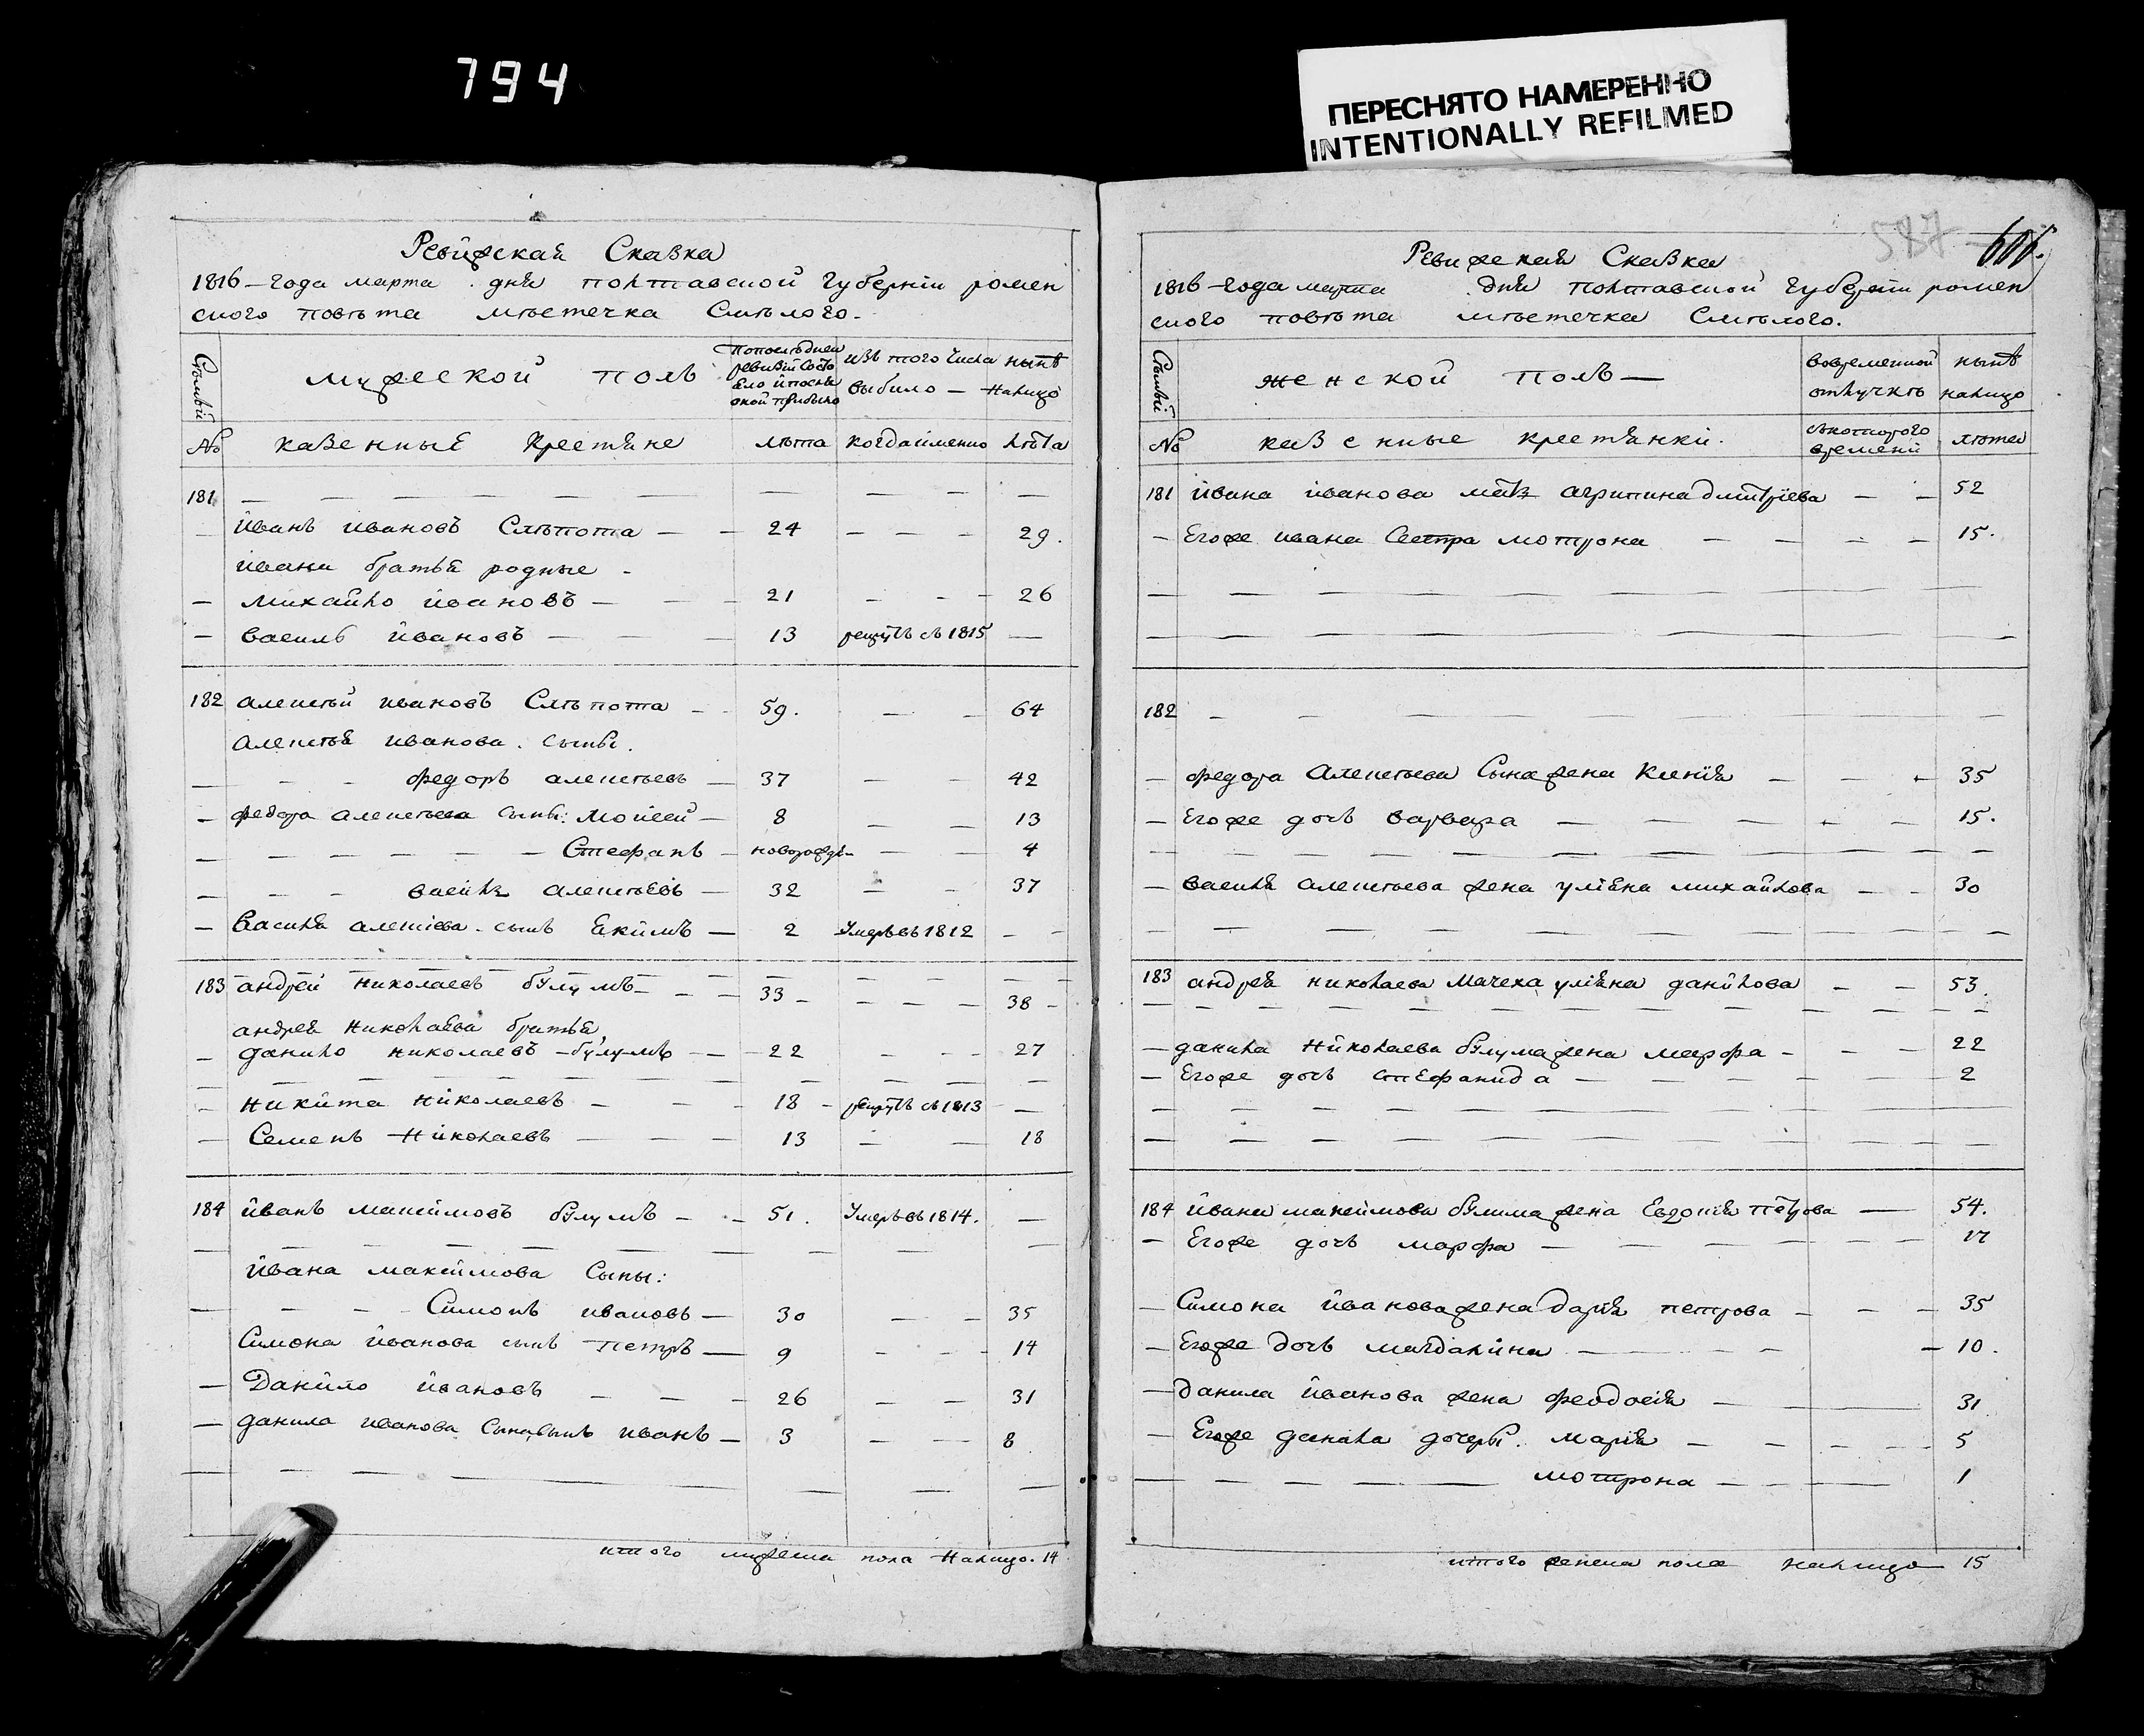 794
ПЕРЕСНЯТО НАМЕРЕННО
INTENTIONALLY REFILMED
Ревизская Сказка
1816 – года марта . дня полтавской губерніи ромен
ского повѣта мѣстечка Смѣлого.
Сѣмьи
мужеской полъ
Попослѣдней ревизіи состо яло и после оной прибыло
изъ того числа выбило —
нынѣ налицо
№ казенные крестяне лѣта когда именно лѣта
181
иванъ ивановъ Слѣпота — — 24 — — — 29.
ивана братья родные -
— михайло ивановъ — 21 - - - 26
— василь ивановъ — 13 рекрутъ съ 1815 —
182 алексѣй ивановъ Слѣпота - - 59. — - 64
алексѣя иванова . сыны.
— - - федоръ алексѣевъ — 37 — - 42
— федора алексѣева сыны: моисей — 8 — — 13
— — — — — — Стефанъ — новорожде — — 4
— - - василь алексѣевъ — 32 — - 37
— василя алексіева . сынъ Екимъ — 2 Умеръ въ 1812 - -
183 андрей николаевъ булумъ — - — 33 - - - - - 38 -
андрея николаева братья
— данило николаевъ – булумъ — — 22 - - - 27
- никита николаевъ - - - 18 - рекрутъ съ 1813 —
— Семенъ николаевъ — — — 13 — — 18
184 иванъ максимовъ булумъ — - - 51. Умеръ въ 1814. —
ивана максимова сыны:
— - - - Симонъ ивановъ — 30 — - 35
Симона иванова сынъ петръ — 9 - - - - 14
— Данило ивановъ — — — 26 — — 31
— данила иванова Сына сынъ иванъ — 3 — - - 8
итого мужеска пола налицо. 14
587
Ревизская Сказка
1816 – года марта . дня полтавской губерніи ромен
ского повѣта мѣстечка Смѣлого.
Сѣмьи
женской полъ —
вовременной отлучкѣ
нынѣ налицо
№ казенные крестянки. съкоторого времени лѣта
181 ивана иванова мать агрипина дмитріева — — 52
— Егоже ивана Сестра мотрона — — - — 15.
182
— федора Алексѣева Сына жена Ксенія — — — 35
— Егоже дочь варвара — — — - — 15.
— василя алексѣева жена уліяна михайлова — - 30
183 андрея николаева мачеха уліяна данилова - — 53.
— данила николаева булума жена марфа - - — 22
— Егоже дочь стефанида — — — — — 2
184 ивана максимова булима жена Евдокія петрова — 54.
— Егоже дочь марфа — — — — — 17
— Симона иванова жена дарія петрова — - — 35
— Егоже дочь магдалина — — 10.
— данила иванова жена феодосія — — 31
— Егоже данила дочери . марія — — — 5
— — — — мотрона — — — 1
итого женска пола налицо 15